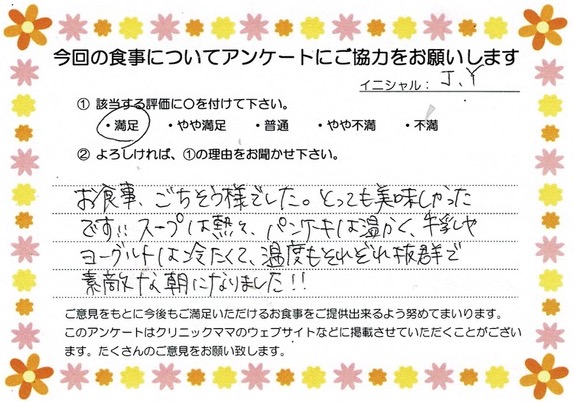 今回の食事についてアンケートにご協力をお願いします
イニシャル： J.Y
① 該当する評価に〇を付けて下さい。
・満足 ・やや満足 ・普通 ・やや不満 ・不満
② よろしければ、①の理由をお聞かせ下さい。
お食事、ごちそう様でした。とっても美味しかった
です!! スープは熱々、パンケーキは温かく、牛乳や
ヨーグルトは冷たくて、温度もそれぞれ抜群で
素敵な朝になりました!!
ご意見をもとに今後もご満足いただけるお食事をご提供出来るよう努めてまいります。
このアンケートはクリニックママのウェブサイトなどに掲載させていただくことがござい
ます。たくさんのご意見をお願い致します。